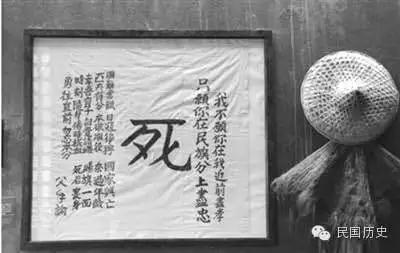 我不願你在我近前盡孝
只願你在民族分上盡忠
死
國難當頭 日寇猙獰 國家興亡
匹夫有分 本欲服役 奈過年齡
幸吾有子 自覺請纓 賜旗一面
時刻隨身 傷時拭血 死后裹身
勇往直前 勿忘本分
父手諭
民国历史